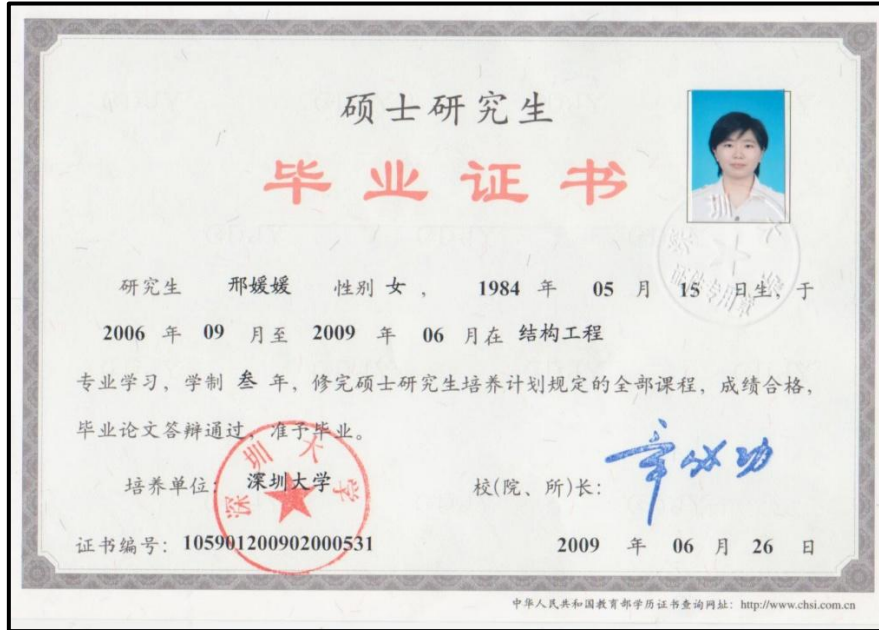 硕士研究生
毕业证书
研究生 邢媛媛 性别 女 , 1984 年 05 月 15 日生, 于
2006 年 09 月至 2009 年 06 月在 结构工程
专业学习, 学制 叁 年, 修完硕士研究生培养计划规定的全部课程, 成绩合格,
毕业论文答辩通过, 准予毕业。
培养单位: 深圳大学
深圳大学
校(院、所)长: 章必功
证书编号: 105901200902000531
2009 年 06 月 26 日
中华人民共和国教育部学历证书查询网址: http://www.chsi.com.cn